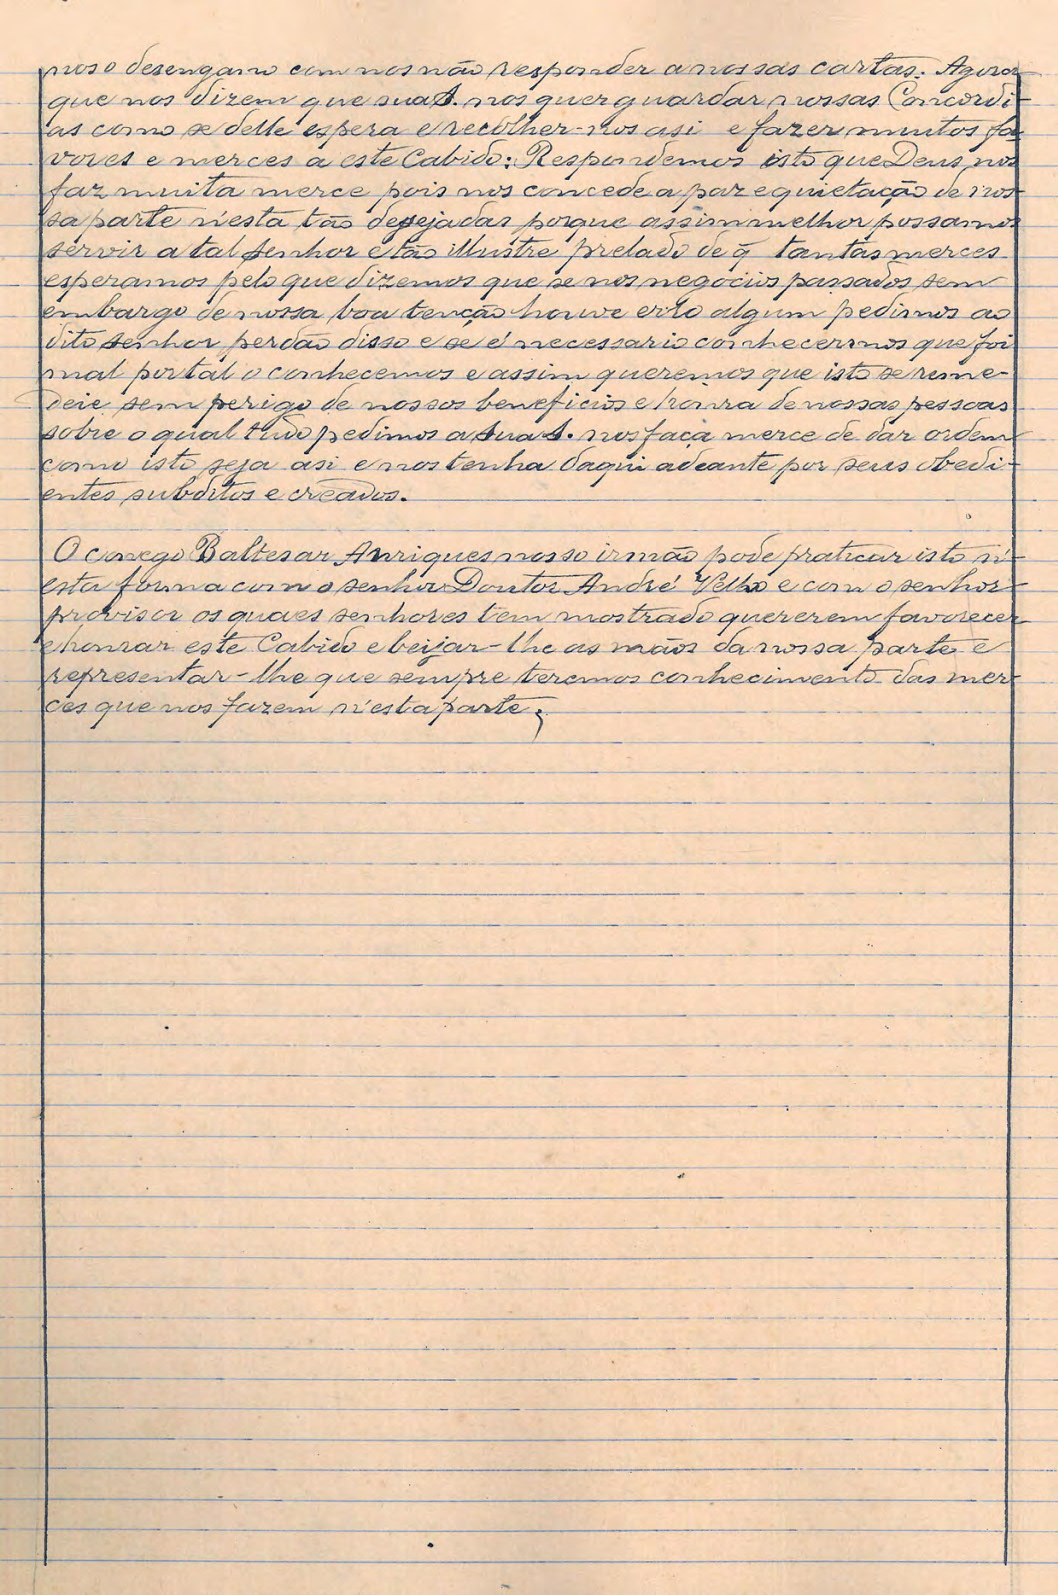 nos o desengano com nos não responder a nossas cartas. Agora
que nos dizem que sua S. nos quer guardar nossas Concordi-
as como se delle espera e recolher-nos asi e fazer muitos fa-
vores e merces a este Cabido: Respondemos isto que Deus nos
faz muita merce pois nos concede a paz e quietação de nos-
sa parte n'esta tão desejadas porque assim melhor possamos
servir a tal senhor e tão illustre prelado de q̃ tantas merces
esperamos pelo que dizemos que se nos negocios passados sem
embargo de nossa boa tenção houve erro algum pedimos ao
dito senhor perdão disso e se é necessario conhecermos que foi
mal por tal o conhecemos e assim queremos que isto se reme-
deie sem perigo de nossos beneficios e honra de nossas pessoas
sobre o qual tudo pedimos a sua S. nos faça merce de dar ordem
como isto seja asi e nos tenha daqui adeante por seus obedi-
entes subditos e creados.
O conego Baltesar Anriques nosso irmão pode praticar isto n'-
esta forma com o senhor Doutor André Velho e com o senhor
provisor os quaes senhores tem mostrado quererem favorecer
e honrar este Cabido e beijar-lhe as mãos da nossa parte e
representar-lhe que sempre teremos conhecimento das mer-
ces que nos fazem n'esta parte;